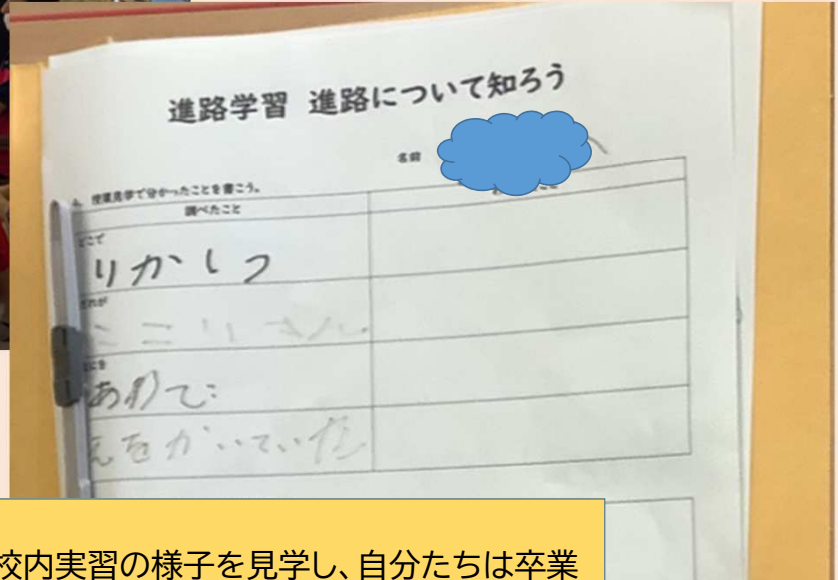 進路学習 進路について知ろう
名前
授業見学で分かったことを書こう。
調べたこと
どこで
りかしつ
だれが
なにを
えをかいていた
校内実習の様子を見学し、自分たちは卒業